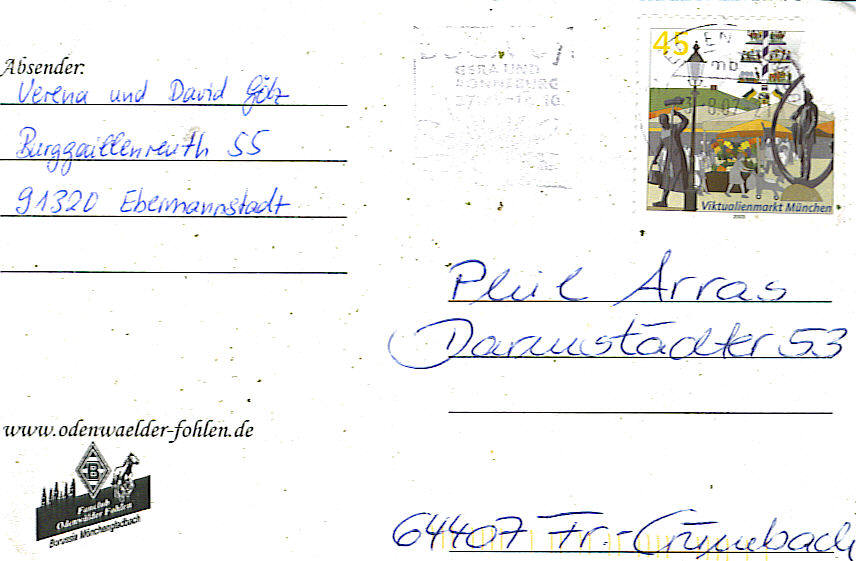 Absender:
Verena und David Götz
Burggaillenreuth 55
91320 Ebermannstadt
www.odenwaelder-fohlen.de
B
Fanclub
Odenwälder Fohlen
Borussia Mönchengladbach
GERA UND
RONNEBURG
45
Viktualienmarkt München
Phil Arras
Darmstädter 53
64407 Fr.-Crumbach